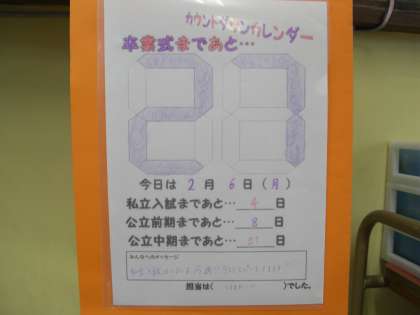 カウントダウンカレンダー
卒業式まであと…
27
今日は 2 月 6 日 (月)
私立入試まであと… 4 日
公立前期まであと… 8 日
公立中期まであと… 日
みんなへのメッセージ
担当は( )でした。